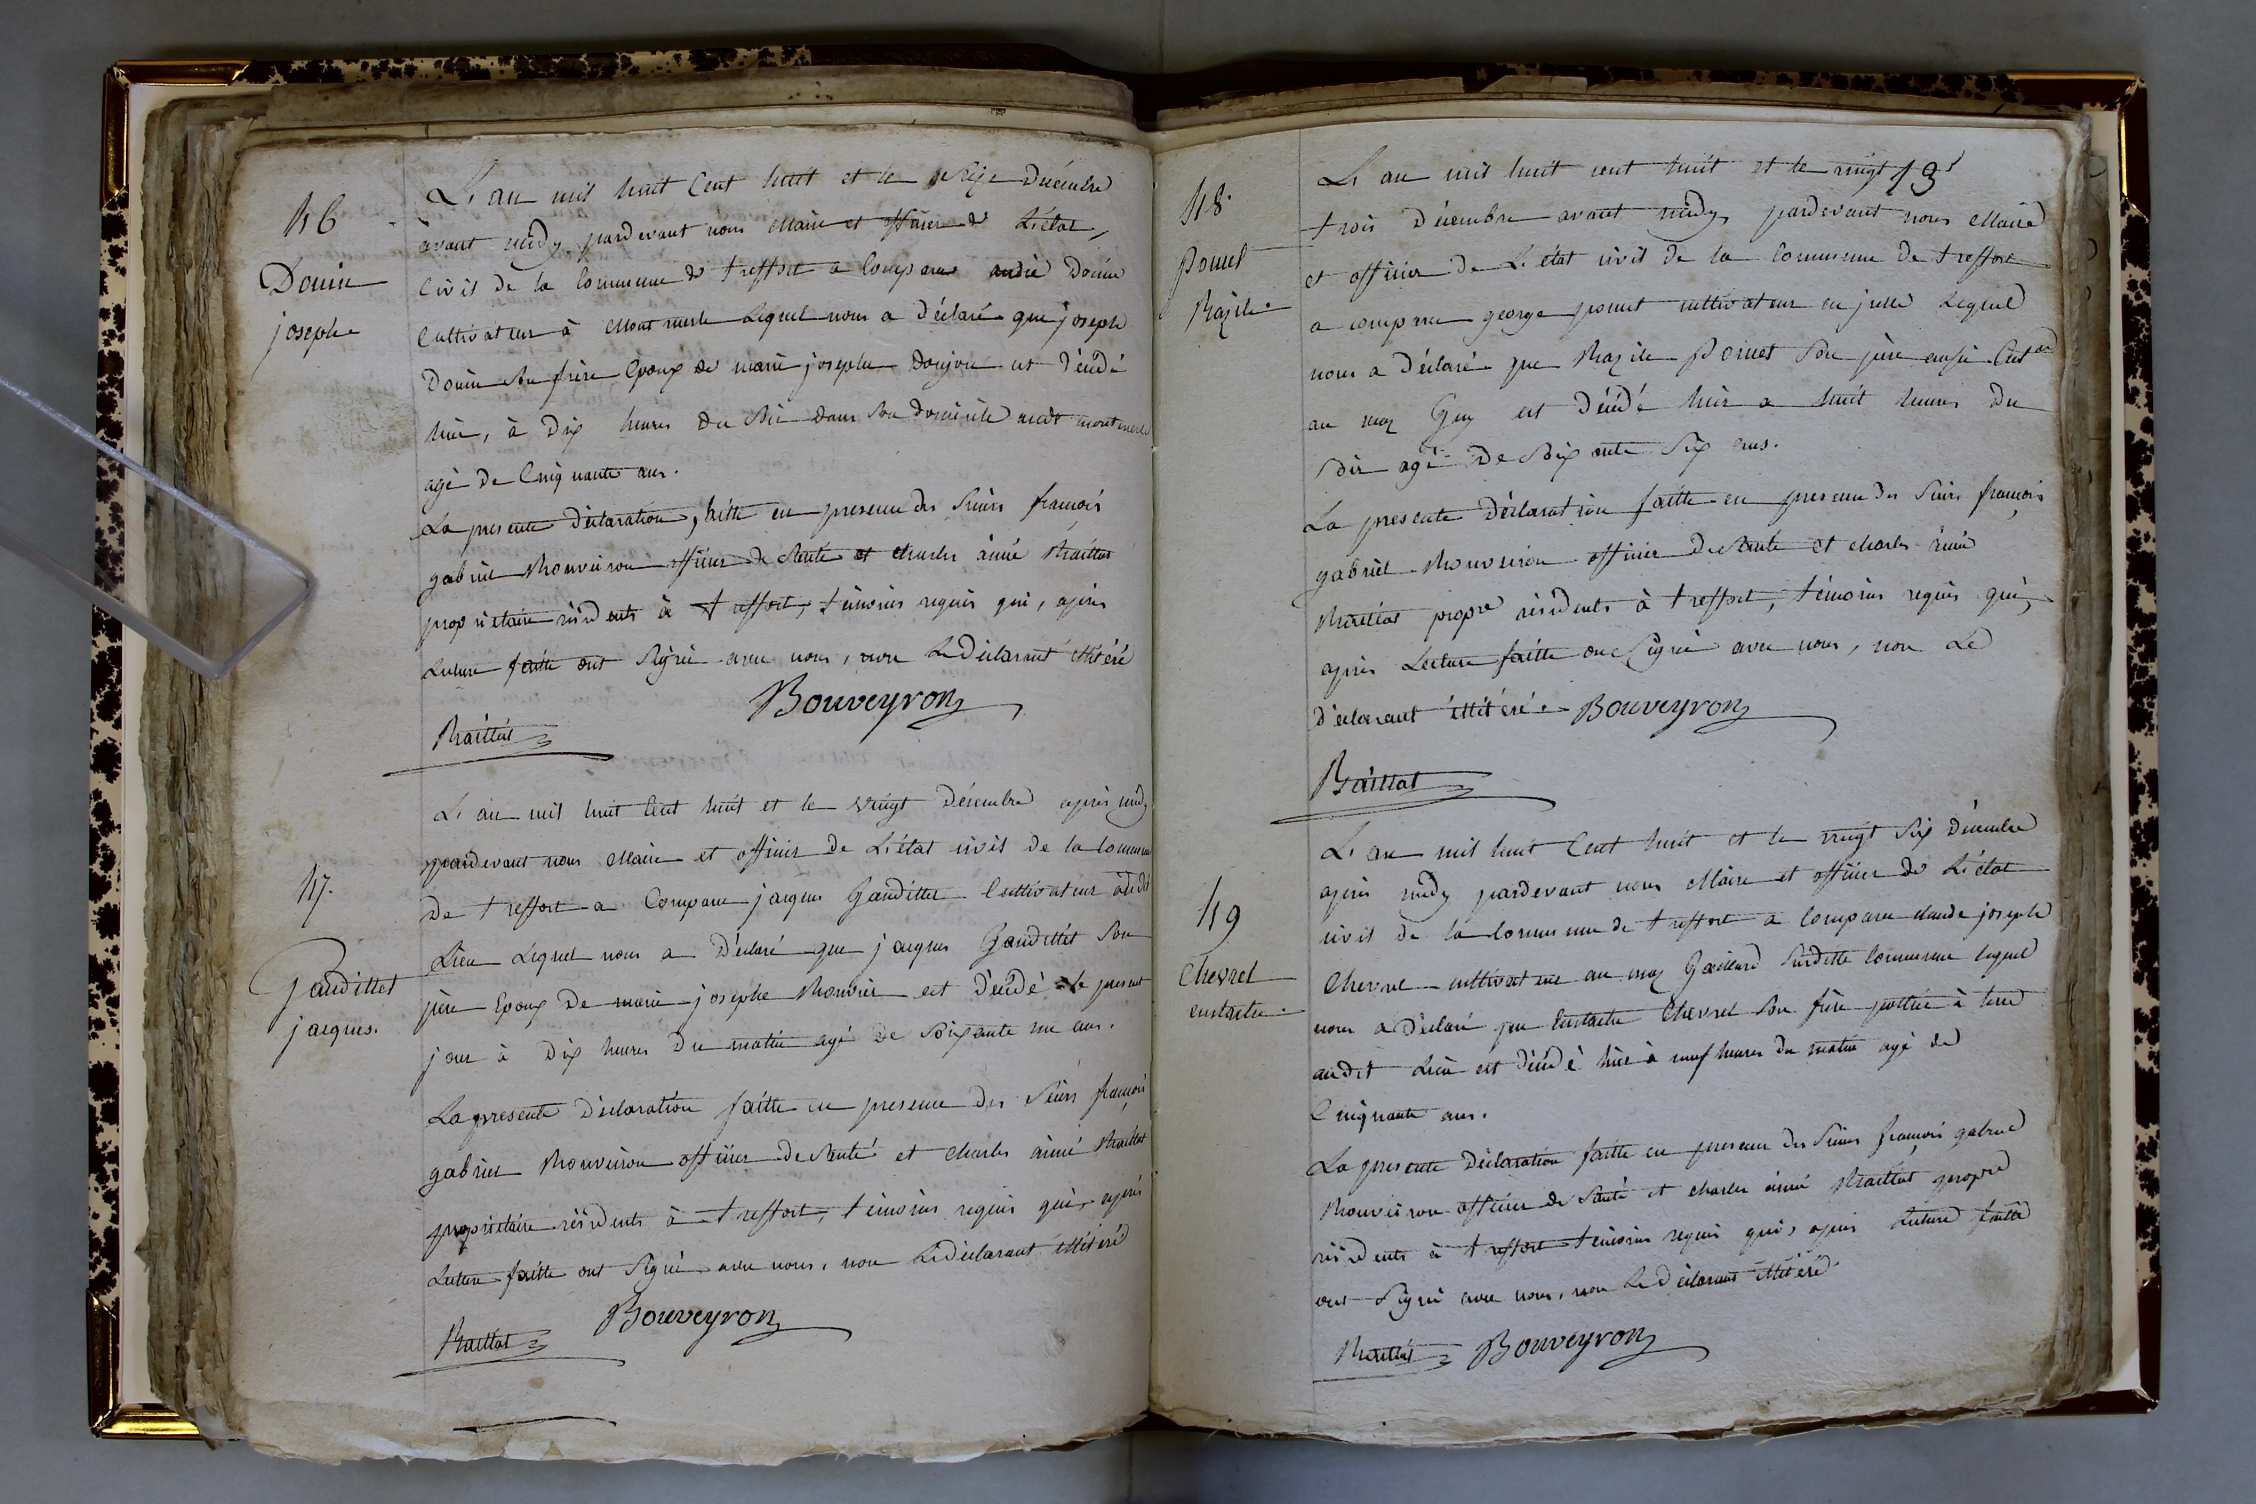 46
Douin
joseph
L'an mil huit Cent huit et le seize Decembre
avant midy pardevant nous Maire et officier de L'état
Civil de la Commune de treffort a Comparu andré Douin
Cultivateur à Montmerle Lequel nous a Déclaré que joseph
Douin son frère Epoux de marie josephe Donjon est Décédé
hier, à Dix heures du soir dans son domicile audit montmerle
agé de Cinquante ans.
La presente déclaration, faitte en presence des Sieurs françois
gabriel Bouveiron officier de Santé et Charles aimé Baillat
propriétaire résidents à treffort, témoins requis qui, après
Lecture faitte ont Signé avec nous, non Le Déclarant illitéré
Bouveyron
Baillat
47.
Gaudillet
jacques.
L'an mil huit Cent huit et le vingt Décembre après midy
pardevant nous Maire et officier de L'état civil de la Commune
De treffort a Comparu jacques Gaudillet Cultivateur audit
Lieu Lequel nous a Déclaré que jacques Gaudillet Son
père Epoux De marie josephe Bouvier est Décédé le present
jour à Dix heures Du matin agé de Soixante un ans.
La presente Déclaration faitte en presence des Sieurs françois
gabriel Bouveiron officier de Santé et Charles aimé Baillat
propriétaire résidents à treffort, témoins requis qui, après
Lecture faitte ont Signé avec nous, non Le déclarant illitéré
Baillat Bouveyron
48.
Ponet
Bazile
13
L'an mil huit cent huit et le vingt
trois Décembre avant midy pardevant nous Maire
et officier de L'état civil de la Commune de treffort
a comparu george ponet cultivateur en Lequel
nous a Déclaré que Bazile Ponet Son père aussi Cult.eur
au maz Guy est Décédé hier a huit heures Du
Soir agé De Soixante Six ans.
La presente Déclaration faitte en presence des Sieurs françois
gabriel Bouveiron officier de Santé et Charles aimé
Baillat propre résidents à treffort, témoins requis qui,
après Lecture faitte ont Signé avec nous, non Le
Déclarant illitéré. Bouveyron
Baillat
49
Chevrel
eustache.
L'an mil huit Cent huit et le vingt Six Décembre
après midy pardevant nous Maire et officier de L'état
civil de la Commune de treffort a Comparu claude joseph
Chevrel cultivateur au maz Gaillard Surditte Commune lequel
nous a déclaré que Eustache Chevrel Son frère à
audit Lieu est Décédé hier à neuf heures du matin agé de
Cinquante ans.
La presente Déclaration faitte en presence des Sieurs françois gabriel
Bouveiron officier de Santé et Charles aimé Baillat propre
résidents à treffort témoins requis qui, après Lecture faitte
ont Signé avec nous, non Le Déclarant illitéré
Baillat Bouveyron